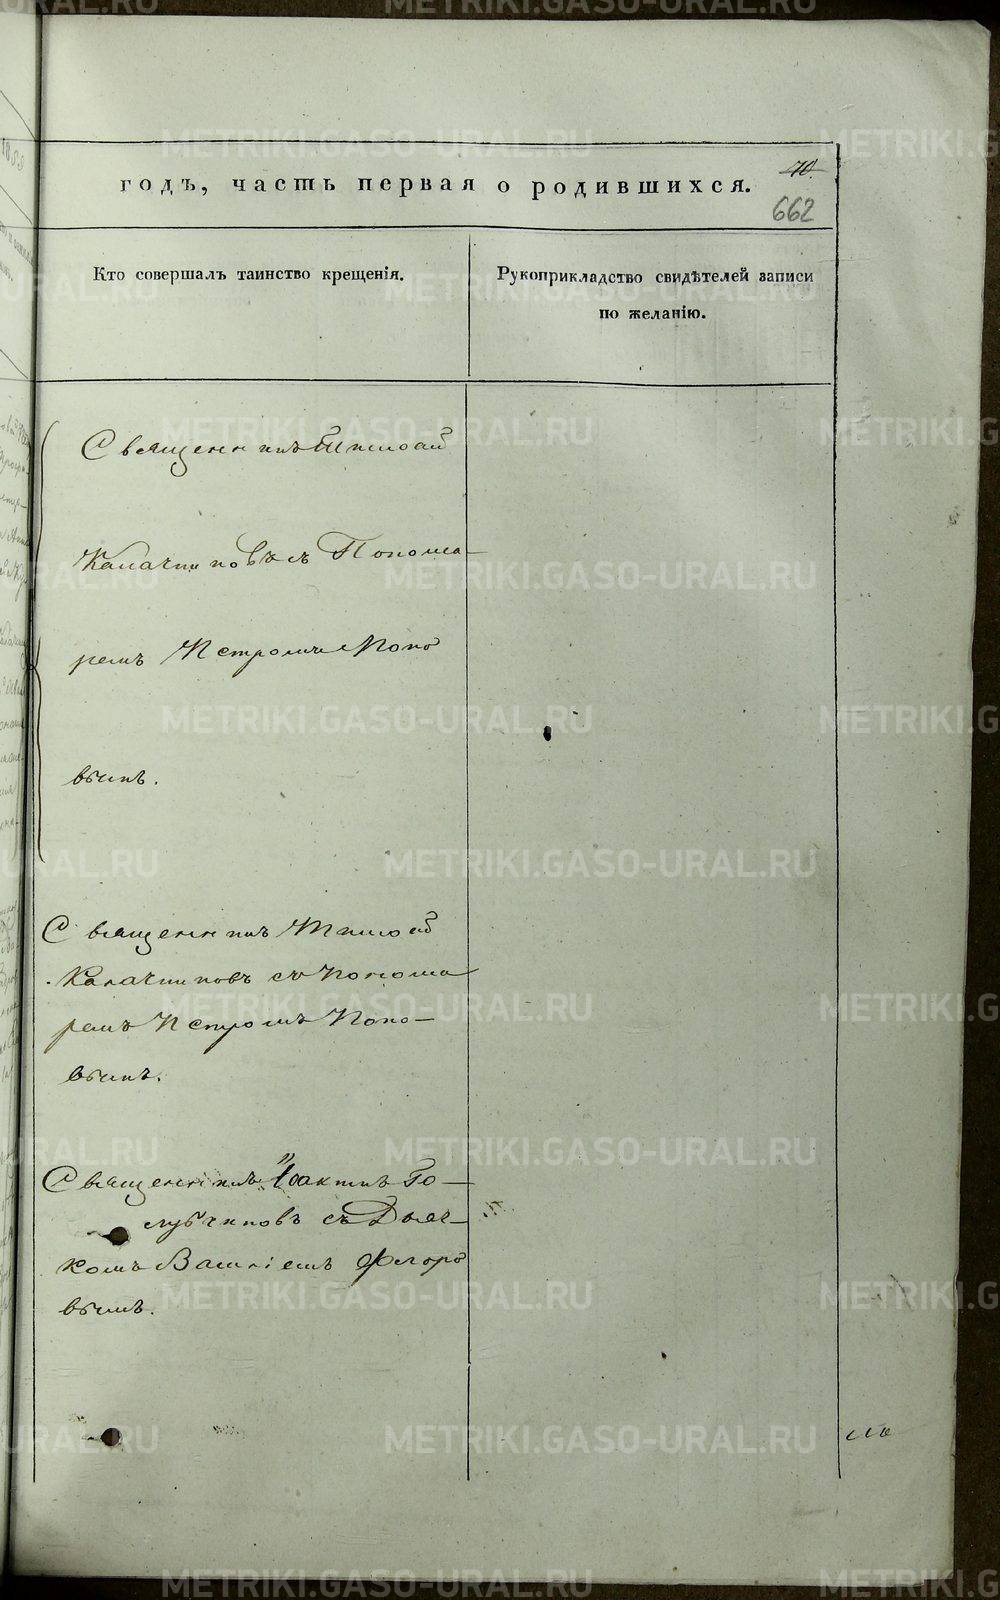 годъ, часть первая о родившихся.
70.
662
Кто совершалъ таинство крещенія.
Рукоприкладство свидѣтелей записи
по желанію.
Священникъ Тимоѳей
Калачниковъ съ Понома-
ремъ Петромъ Попо
вымъ.
Священникъ Тимоѳей
Калачниковъ съ Понома
ремъ Петромъ Попо-
вымъ.
Священникъ Іоакимъ Го-
лубчиковъ съ Дьяч-
комъ Василіемъ Флоро
вымъ.
METRIKI.GASO-URAL.RU